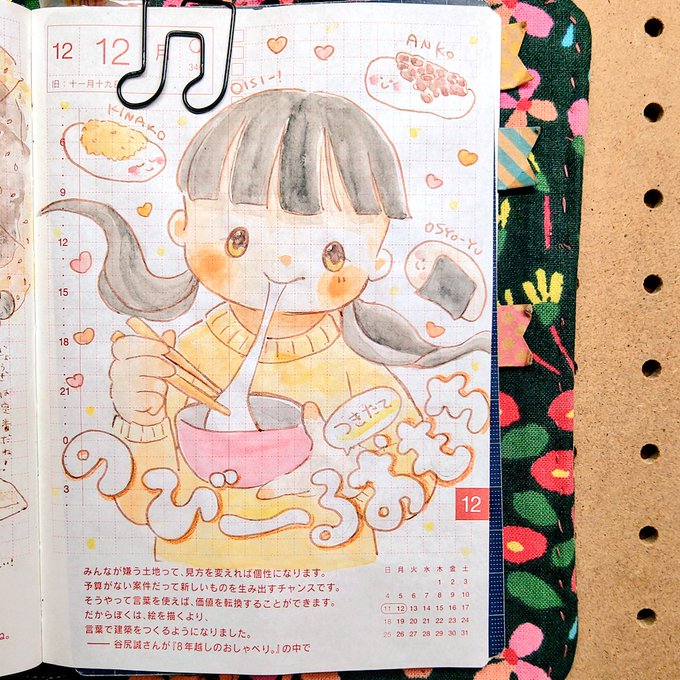 12 12 月
旧:十一月十九
OISI-!
ANKO
KINAKO
OSYO-YU
6
9
12
15
18
21
0
3
つきたて
のび〜るおもち
12
みんなが嫌う土地って、見方を変えれば個性になります。
予算がない案件だって新しいものを生み出すチャンスです。
そうやって言葉を使えば、価値を転換することができます。
だからぼくは、絵を描くより、
言葉で建築をつくるようになりました。
―― 谷尻誠さんが『8年越しのおしゃべり。』の中で
日 月 火 水 木 金 土
1 2 3
4 5 6 7 8 9 10
11 12 13 14 15 16 17
18 19 20 21 22 23 24
25 26 27 28 29 30 31